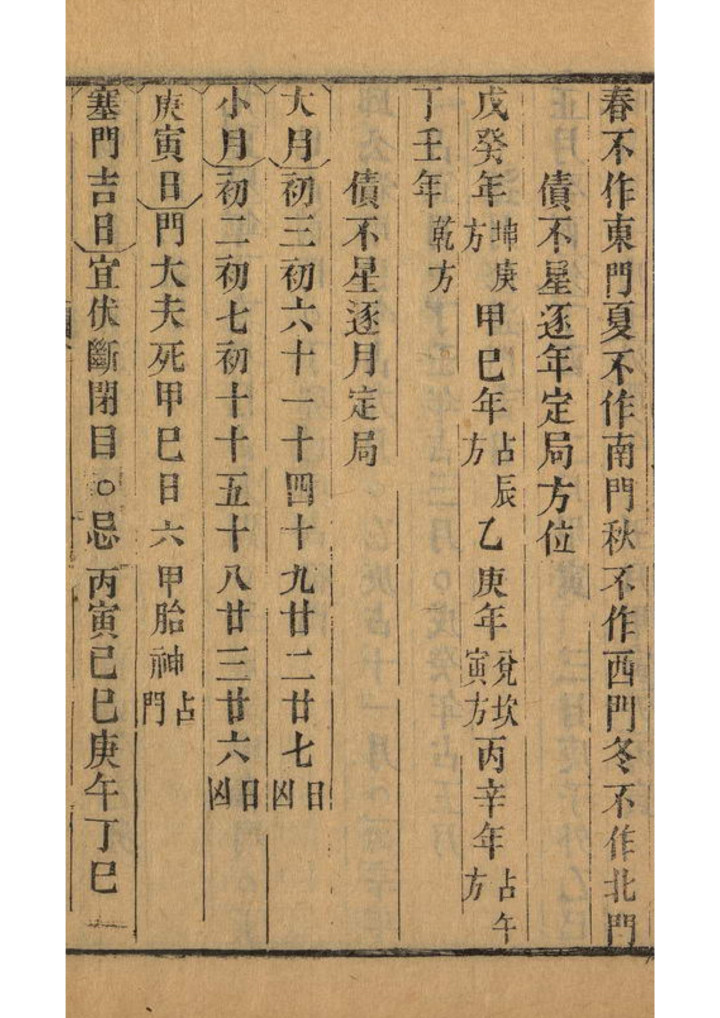 春不作東門夏不作南門秋不作西門冬不作北門
債不星逐年定局方位
戊癸年坤庚方甲巳年占辰方乙庚年兌坎寅方丙辛年占午方
丁壬年乾方
債不星逐月定局
大月初三初六十一十四十九廿二廿七日凶
小月初二初七初十十五十八廿三廿六日凶
庚寅日門大夫死甲巳日六甲胎神占門
塞門吉日宜伏斷閉日○忌丙寅己巳庚午丁巳